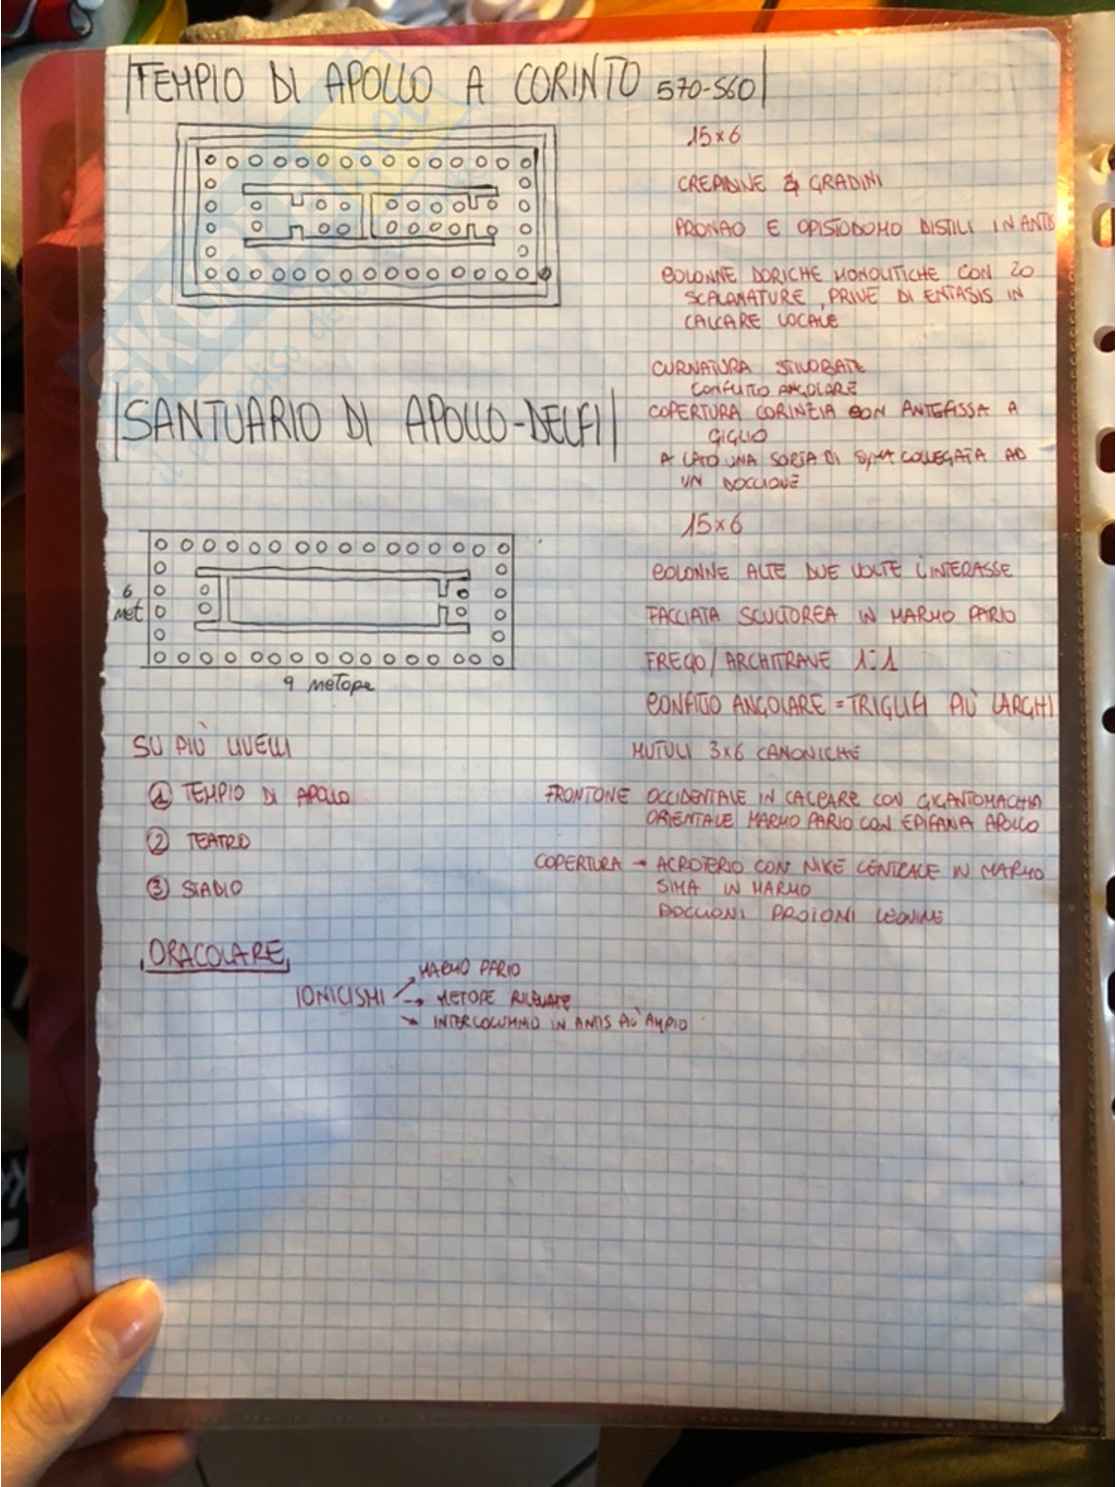 TEMPIO DI APOLLO A CORINTO 570-560
15x6
CREPIDINE 4 GRADINI
PRONAO E OPISTODOMO DISTILI IN ANTIS
COLONNE DORICHE MONOLITICHE CON 20
SCALANATURE, PRIVE DI ENTASIS IN
CALCARE LOCALE
CURNATURA STILOBATE
CONFLITTO ANGOLARE
COPERTURA CORINZIA CON ANTEFISSA A
GIGLIO
A LATO UNA SORTA DI SIMA COLLEGATA AD
UN DOCCIONE
SANTUARIO DI APOLLO-DELFI
15x6
COLONNE ALTE DUE VOLTE L'INTERASSE
FACCIATA SCULTOREA IN MARMO PARIO
FREGO/ARCHITRAVE 1:1
CONFLITTO ANGOLARE = TRIGLIFI PIÙ LARGHI
MUTULI 3x6 CANONICHE
FRONTONE OCCIDENTALE IN CALCARE CON GIGANTOMACHIA
ORIENTALE MARMO PARIO CON EPIFANIA APOLLO
COPERTURA → ACROTERIO CON NIKE CENTRALE IN MARMO
SIMA IN MARMO
DOCCIONI PROTONI LEONINE
6
met
9 metope
SU PIÙ LIVELLI
① TEMPIO DI APOLLO
② TEATRO
③ STADIO
ORACOLARE
IONICISMI → MARMO PARIO
→ METOPE RILEVATE
→ INTERCOLUMNIO IN ANTIS PIÙ AMPIO